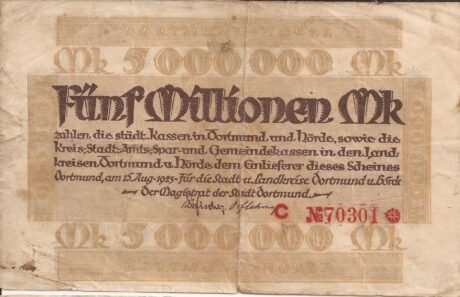 Mk 5 000 000 Mk
Fünf Millionen Mk
zahlen die städt. Kassen in Dortmund und Hörde, sowie die
Kreis-, Stadt-, Amts-, Spar- und Gemeindekassen in den Land-
kreisen Dortmund u. Hörde dem Einlieferer dieses Scheines
Dortmund, am 15. Aug. 1923 · Für die Stadt- u. Landkreise Dortmund u. Hörde
Der Magistrat der Stadt Dortmund
C № 70301 *
Mk 5 000 000 Mk